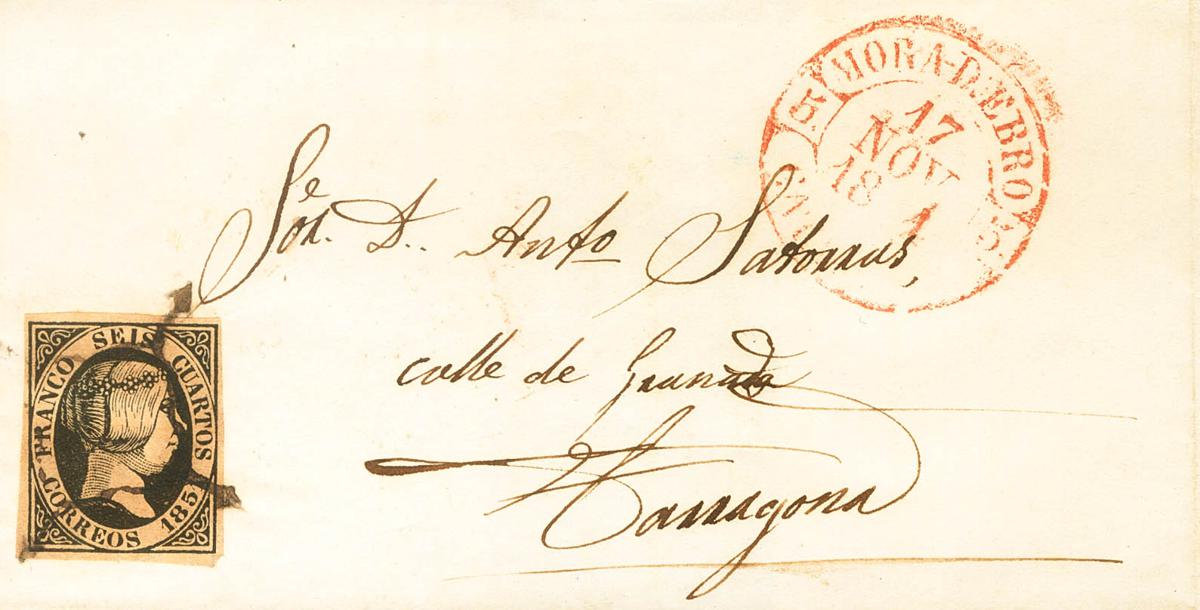 MORA-D.EBRO
17
NOV
18 1
Sör. D. Anto Satorras,
calle de Granada
Tarragona
FRANCO SEIS CUARTOS
CORREOS 185